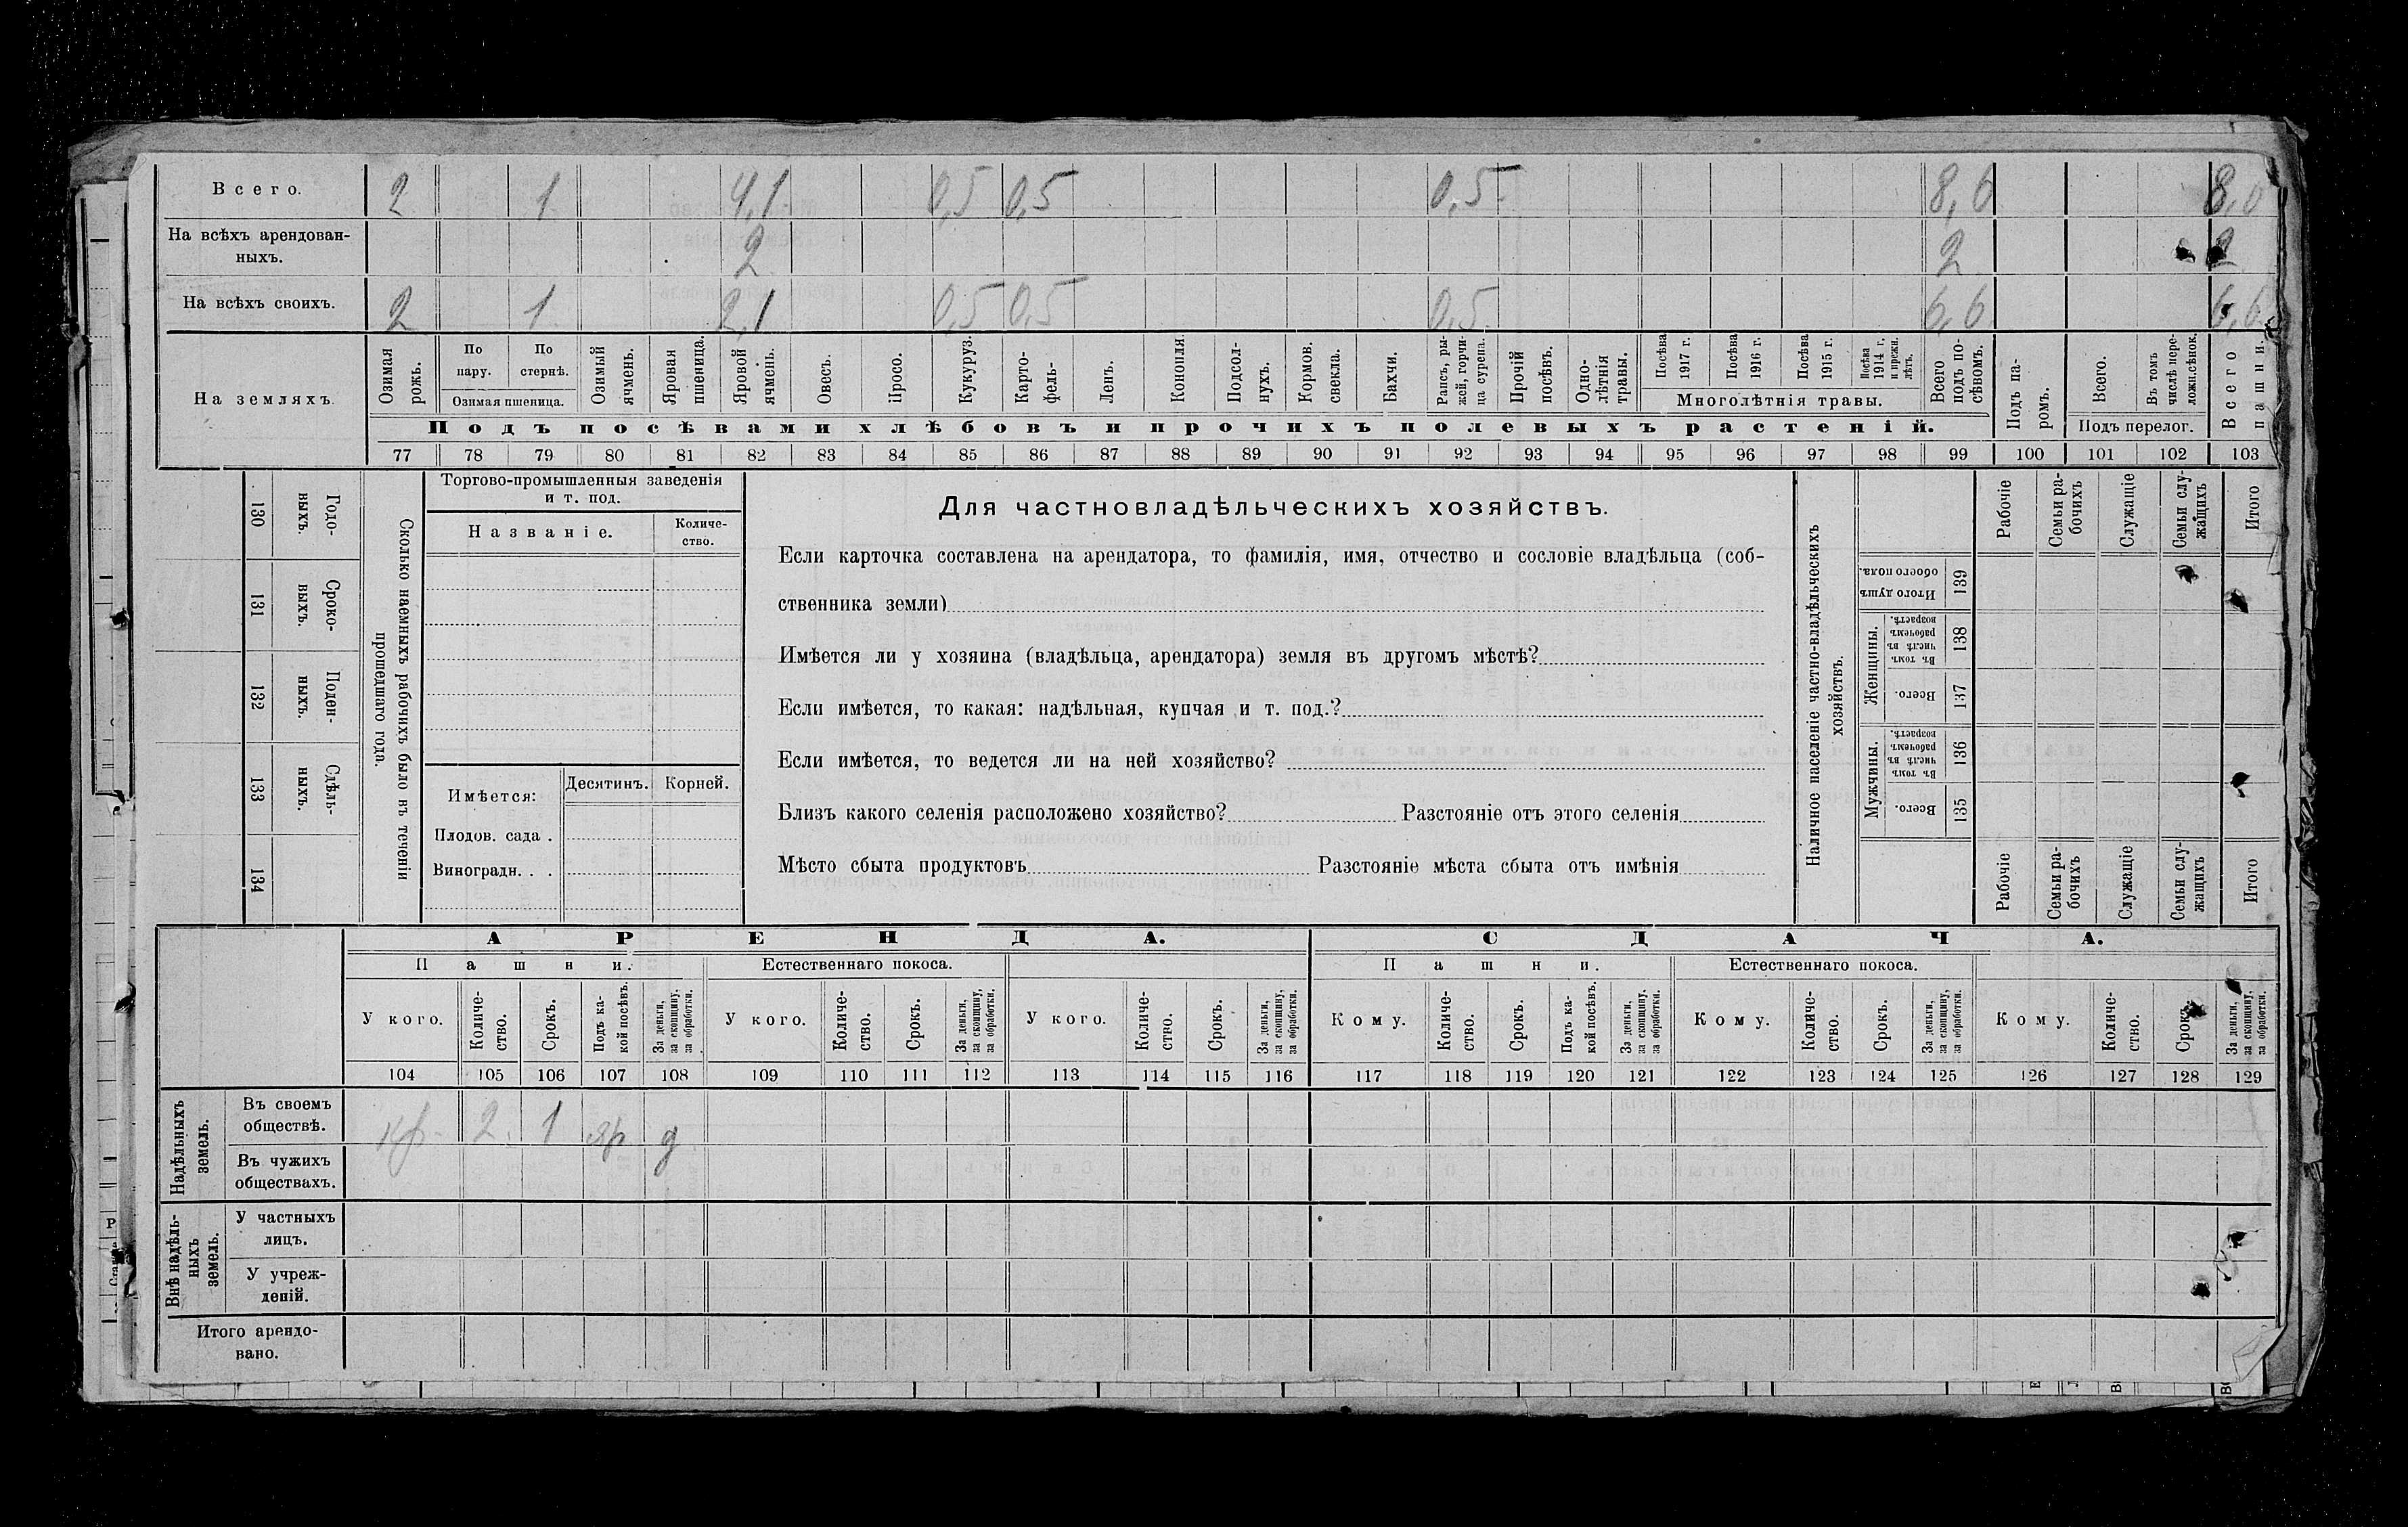 Всего. 2 1 4,1 0,5 0,5 0,5 8,6
На всѣхъ арендован-
ныхъ. 2 2 2
На всѣхъ своихъ. 2 1 2,1 0,5 0,5 0,5 6,6 6,6
На земляхъ.
Озимая рожь.
По пару.
По стернѣ.
Озимая пшеница.
Озимый ячмень.
Яровая пшеница.
Яровой ячмень.
Овесъ.
Просо.
Кукуруз.
Карто-
фель.
Ленъ.
Конопля.
Подсол-
нухъ.
Кормов.
свекла.
Бахчи.
Рапсъ, ры-
жей, горчи-
ца сурепа.
Прочій
посѣвъ.
Одно-
лѣтнія
травы.
Посѣва
1917 г.
Посѣва
1916 г.
Посѣва
1915 г.
Посѣва
1914 г.
и прежн.
лѣтъ.
Многолѣтнія травы.
Всего
подъ по-
сѣвомъ.
Подъ па-
ромъ.
Всего.
Въ томъ
числѣ пере-
ложн.сѣнок.
Подъ перелог.
Всего
пашни.
Подъ посѣвами хлѣбовъ и прочихъ полевыхъ растеній.
77 78 79 80 81 82 83 84 85 86 87 88 89 90 91 92 93 94 95 96 97 98 99 100 101 102 103
Сколько наемныхъ рабочихъ было въ теченіи
прошедшаго года.
Годо-
выхъ. 130
Сроко-
выхъ. 131
Поден-
ныхъ. 132
Сдѣль-
ныхъ. 133
134
Торгово-промышленныя заведенія
и т. под.
Названіе.
Количе-
ство.
Имѣется: Десятинъ. Корней.
Плодов. сада .
Виноградн. . .
Для частновладѣльческихъ хозяйствъ.
Если карточка составлена на арендатора, то фамилія, имя, отчество и сословіе владѣльца (соб-
ственника земли)
Имѣется ли у хозяина (владѣльца, арендатора) земля въ другомъ мѣстѣ?
Если имѣется, то какая: надѣльная, купчая и т. под.?
Если имѣется, то ведется ли на ней хозяйство?
Близъ какого селенія расположено хозяйство? Разстояніе отъ этого селенія
Мѣсто сбыта продуктовъ Разстояніе мѣста сбыта отъ имѣнія
Наличное населеніе частно-владѣльческихъ
хозяйствъ.
Рабочіе
Семьи ра-
бочихъ
Служащіе
Семьи слу-
жащихъ
Итого
Итого душъ
обоего пола. 139
Женщины.
Въ томъ
числѣ въ
рабочемъ
возрастѣ. 138
Всего. 137
Мужчины.
Въ томъ
числѣ въ
рабочемъ
возрастѣ. 136
Всего. 135
Рабочіе
Семьи ра-
бочихъ
Служащіе
Семьи слу-
жащихъ
Итого
АРЕНДА. СДАЧА.
Пашни. Естественнаго покоса. Пашни. Естественнаго покоса.
У кого.
Количе-
ство.
Срокъ.
Подъ ка-
кой посѣвъ.
За деньги,
за скопщину,
за обработки.
У кого.
Количе-
ство.
Срокъ.
За деньги,
за скопщину,
за обработки.
У кого.
Количе-
ство.
Срокъ.
За деньги,
за скопщину,
за обработки.
Кому.
Количе-
ство.
Срокъ.
Подъ ка-
кой посѣвъ.
За деньги,
за скопщину,
за обработки.
Кому.
Количе-
ство.
Срокъ.
За деньги,
за скопщину,
за обработки.
Кому.
Количе-
ство.
Срокъ.
За деньги,
за скопщину,
за обработки.
104 105 106 107 108 109 110 111 112 113 114 115 116 117 118 119 120 121 122 123 124 125 126 127 128 129
Надѣльныхъ
земель.
Въ своемъ
обществѣ. кр. 2 1 яр д
Въ чужихъ
обществахъ.
Внѣ надѣль-
ныхъ
земель.
У частныхъ
лицъ.
У учреж-
деній.
Итого арендо-
вано.